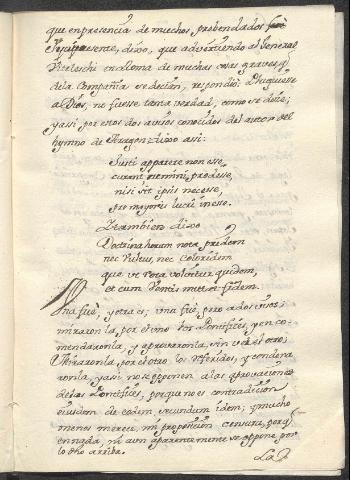 que en presencia de muchos prebendados
presente, dixo, que advertiendo al General
en Roma de muchas cosas graves, q̃
de la Compañia se decian, respondiò: Pluguiesse
a Dios, no fuesse tanta verdad, como se dice;
y assi por estos dos avisos conocidos del autor del
hymno de Aragon dixo assi:
apparere non esse,
curant nemini prodesse,
nisi sit ipsis necesse,
pro majoris lucri messe.
I tambien dixo
Doctrina horum nota pridem
nec nec coloridem
que ut rota volvitur quidem,
et cum ventis fidem.
Una fuè, y otra es; una fuè, pero a dos visos;
miraronla, por el uno los Pontifices, y enco-
mendaronla, y aprovaronla, sin ver el otro;
Miraronla, por el otro los referidos, y condena
ronla, y assi no se opponen a las aprovaciones
de los Pontifices, porque no es contradicion
eiusdem de eodem secundum idem; y mucho
menos merece, mi proposicion censura, porq̃
ni aun aparentemente se oppone por
lo dho arriba.
La